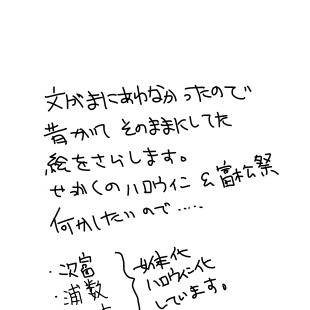 文がまにあわなかったので
昔かいて そのままにしてた
絵をさらします。
せっかくのハロウィン & 富松祭
何かしたいので‥‥
・次富
・浦数
女体化
ハロウィン化
しています。